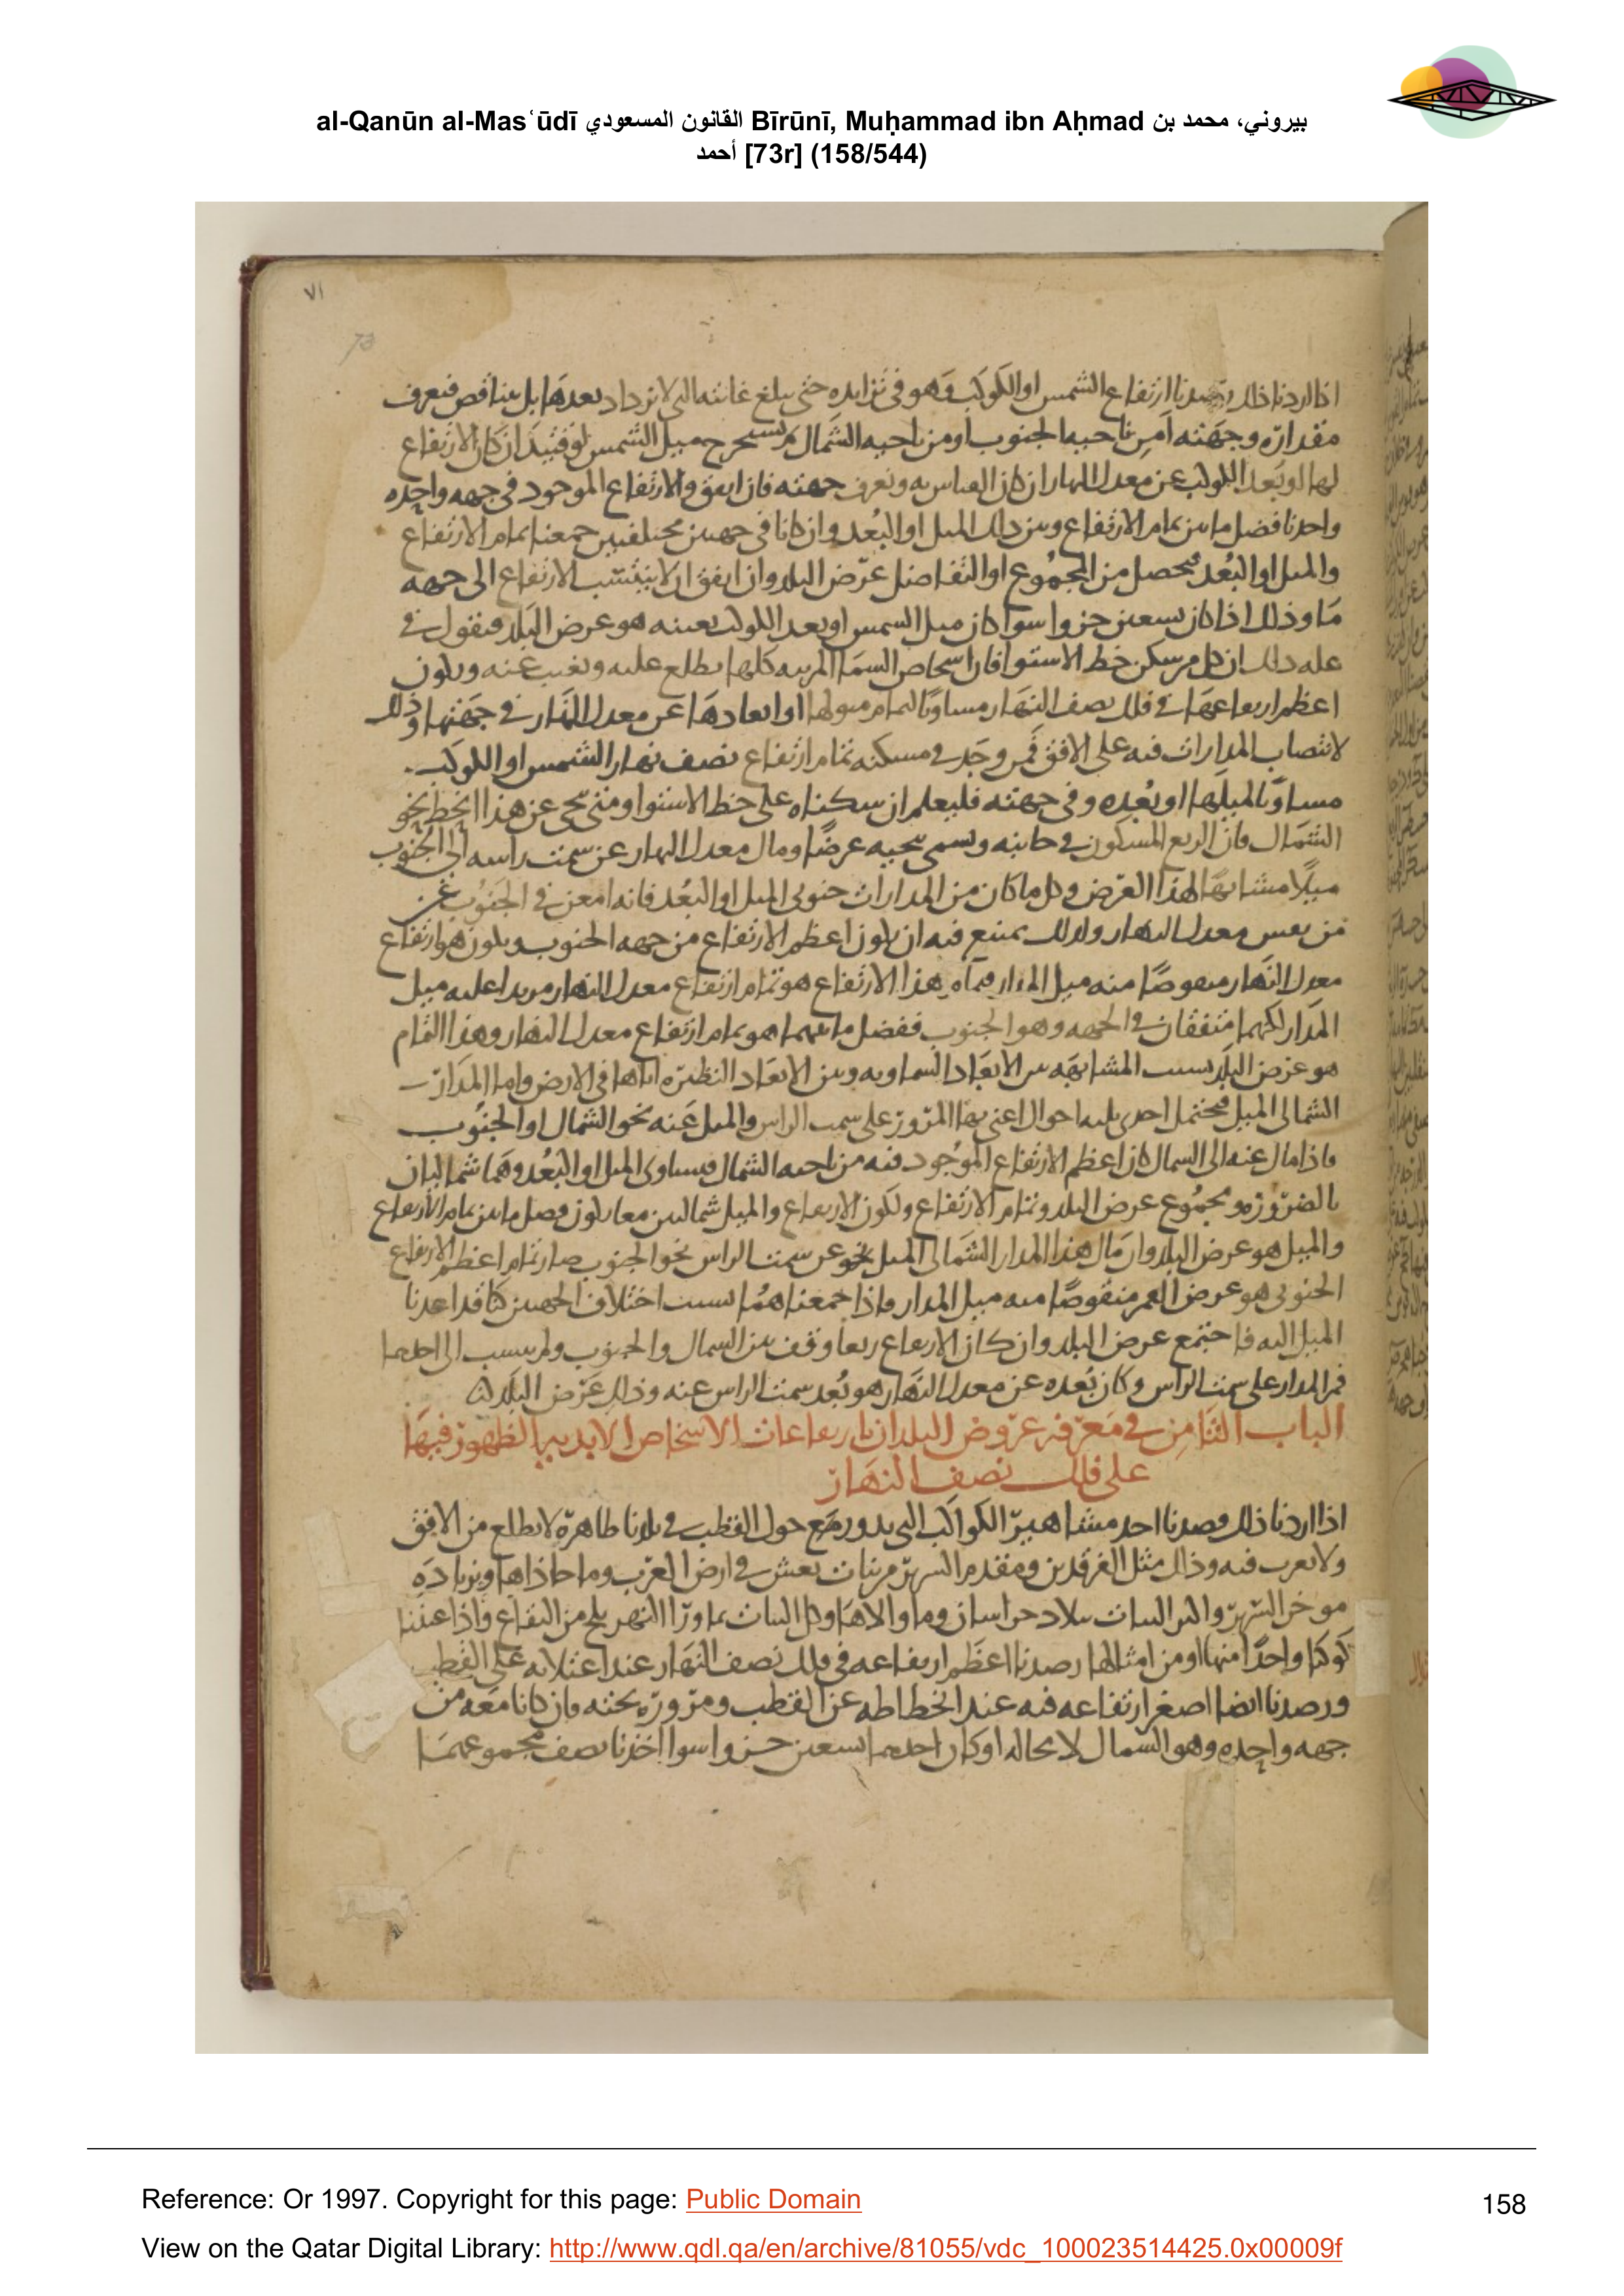 al-Qanūn al-Masʿūdī القانون المسعودي Bīrūnī, Muḥammad ibn Aḥmad بيروني، محمد بن
أحمد [73r] (158/544)
٧١
73
اذا اردنا ذلك رصدنا ارتفاع الشمس او الكوكب وهو في تزايده حتى يبلغ غايته التي لا تزداد بعدها بل يتناقص فنعرف
مقداره وجهته امن ناحية الجنوب او من ناحية الشمال ونستخرج ميل الشمس لوقتئذ ان كان الارتفاع
لها او بعد الكوكب عن معدل النهار ان كان القياس به ونعرف جهته فان اتفق والارتفاع الموجود في جهه واحده
واخذنا فضل ما بين تمام الارتفاع وبين ذلك الميل او البُعد وان كانا في جهتين مختلفتين جمعنا تمام الارتفاع
والميل او البُعد فيحصل من المجموع او التفاضل عرض البلد وان اتفق ان لا ينتسب الارتفاع الى جهه
ما وذلك اذا كان تسعين جزوا سوا كان ميل الشمس او بعد الكوكب بعينه هو عرض البلد فنقول في
علة ذلك ان كل من سكن خط الاستوا فان اشخاص السما المرئيه كلها تطلع عليه وتغيب عنه ويكون
اعظم ارتفاعها في فلك نصف النهار مساويًا لتمام ميولها او ابعادها عن معدل النهار في جهتها وذلك
لانتصاب المدارات فيه على الافق فمن وجد في مسكنه تمام ارتفاع نصف نهار الشمس او الكوكب
مساويًا لميلها او بُعده وفي جهته فليعلم ان سكناه على خط الاستوا ومتى تنحى عن هذا الخط نحو
الشمال فان الربع المسكون في جانبه وتسمى تنحيه عرضًا ومال معدل النهار عن سمت راسه الى الجنوب
ميلًا مشابهًا لهذا العرض وكل ما كان من المدارات جنوبي الميل او البُعد فانه امعن في الجنوب عن
من نفس معدل النهار ولذلك يمتنع فيه ان يكون اعظم الارتفاع من جهه الجنوب ويكون هو ارتفاع
معدل النهار منقوصًا منه ميل المدار فتمام هذا الارتفاع هو تمام ارتفاع معدل النهار مزيدا عليه ميل
المدار لكنهما متفقان في الجهه وهو الجنوب ففضل ما بينهما هو تمام ارتفاع معدل النهار وهذا التمام
هو عرض البلد بسبب المشابهه بين الابعاد السماويه وبين الابعاد النظيره اياها في الارض واما المدار
الشمالي الميل فيحتمل احدى ثلثه احوال اعني بها المرور على سمت الراس والميل عنه نحو الشمال او الجنوب
فاذا مال عنه الى الشمال كان اعظم الارتفاع الموجود فيه من ناحيه الشمال فيساوى الميل او البُعد وهما شماليان
بالضروره مجموع عرض البلد وتمام الارتفاع ولكون الارتفاع والميل شماليين معا يكون فضل ما بين تمام الارتفاع
والميل هو عرض البلد وان مال هذا المدار الشمالي الميل عن سمت الراس نحو الجنوب صار تمام اعظم الارتفاع
الجنوبي هو عرض منقوصًا منه ميل المدار فاذا جمعناهما بسبب اختلاف الجهتين كنا قد اعدنا
الميل اليه فاجتمع عرض البلد وان كان الارتفاع ربعا وقف بين الشمال والجنوب ولم ينسب الى احدهما
فمر المدار على سمت الراس وكان بُعده عن معدل النهار هو بُعد سمت الراس عنه وذلك عرض البلد
الباب الثامن في معرفه عروض البلدان بارتفاعات الاشخاص الابديه الظهور فيها
على فلك نصف النهار
اذا اردنا ذلك قصدنا احد مشاهير الكواكب التى تدور حول القطب في بلدنا ظاهرة لا تطلع من الافق
ولا تغرب فيه وذلك مثل الفرقدين ومقدم السرير من بنات نعش في ارض العرب وما حاذاها وبزياده
موخر السرير والى البنات ببلاد خراسان وما والاها وكل البنات بما ورا النهر بلخ من البقاع واذا عنينا
كوكبا واحدًا منها او من امثالها رصدنا اعظم ارتفاعه في فلك نصف النهار عند اعتلائه على القطب
ورصدنا ايضا اصغر ارتفاعه فيه عند انحطاطه عن القطب ومروره تحته فان كانا معه من
جهه واحده وهو الشمال لا محاله او كان احدهما تسعين جزوا سوا اخذنا نصف مجموعهما
Reference: Or 1997. Copyright for this page: Public Domain
158
View on the Qatar Digital Library: http://www.qdl.qa/en/archive/81055/vdc_100023514425.0x00009f